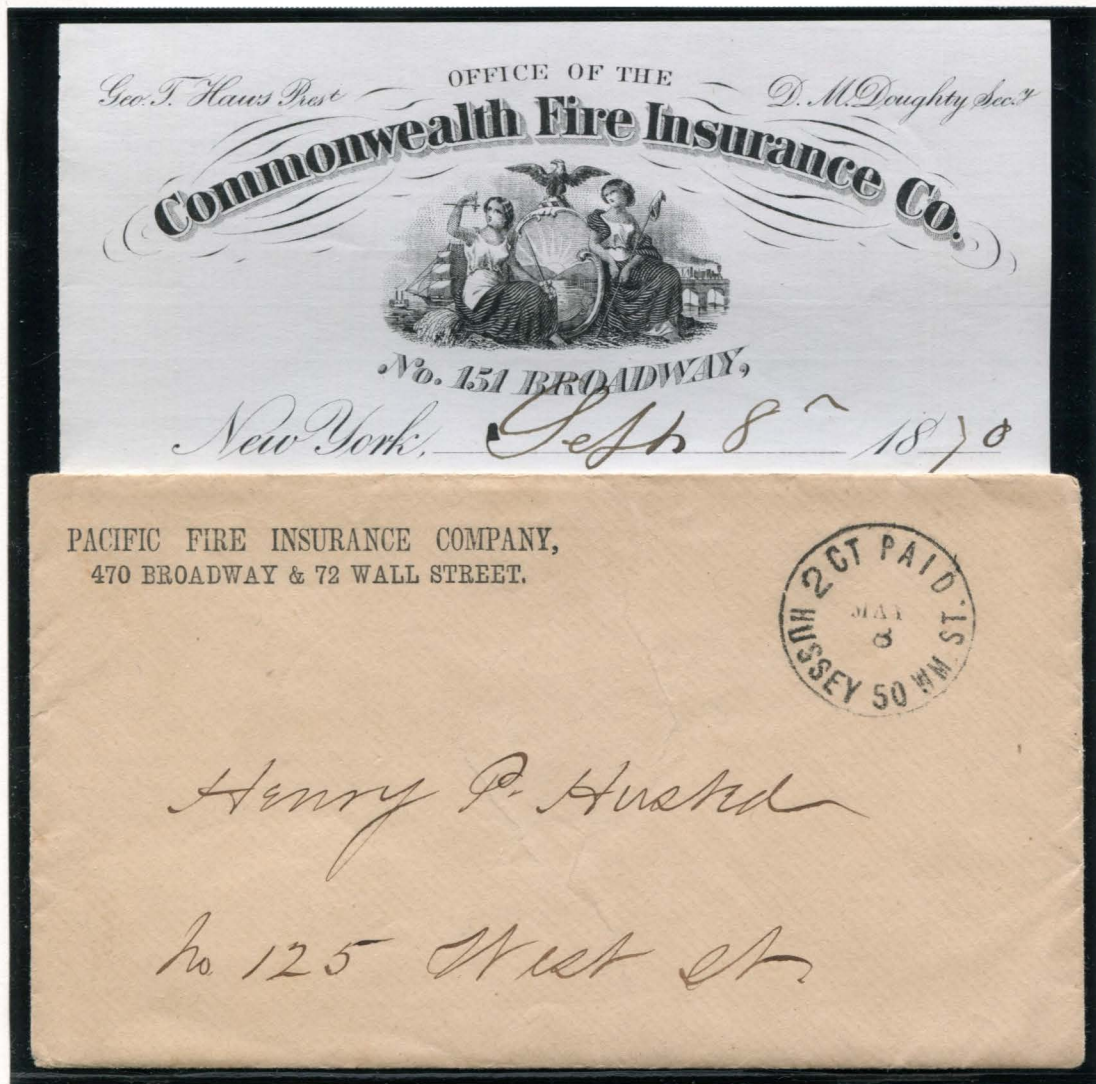 Geo. T. Haws Prest
OFFICE OF THE
D. M. Doughty Secy
Commonwealth Fire Insurance Co.
No. 151 BROADWAY,
New York, Sept 8 1870
PACIFIC FIRE INSURANCE COMPANY,
470 BROADWAY & 72 WALL STREET.
2 CT PAID
MAY
8
HUSSEY 50 WM. ST.
Henry P. Husted
No 125 West St